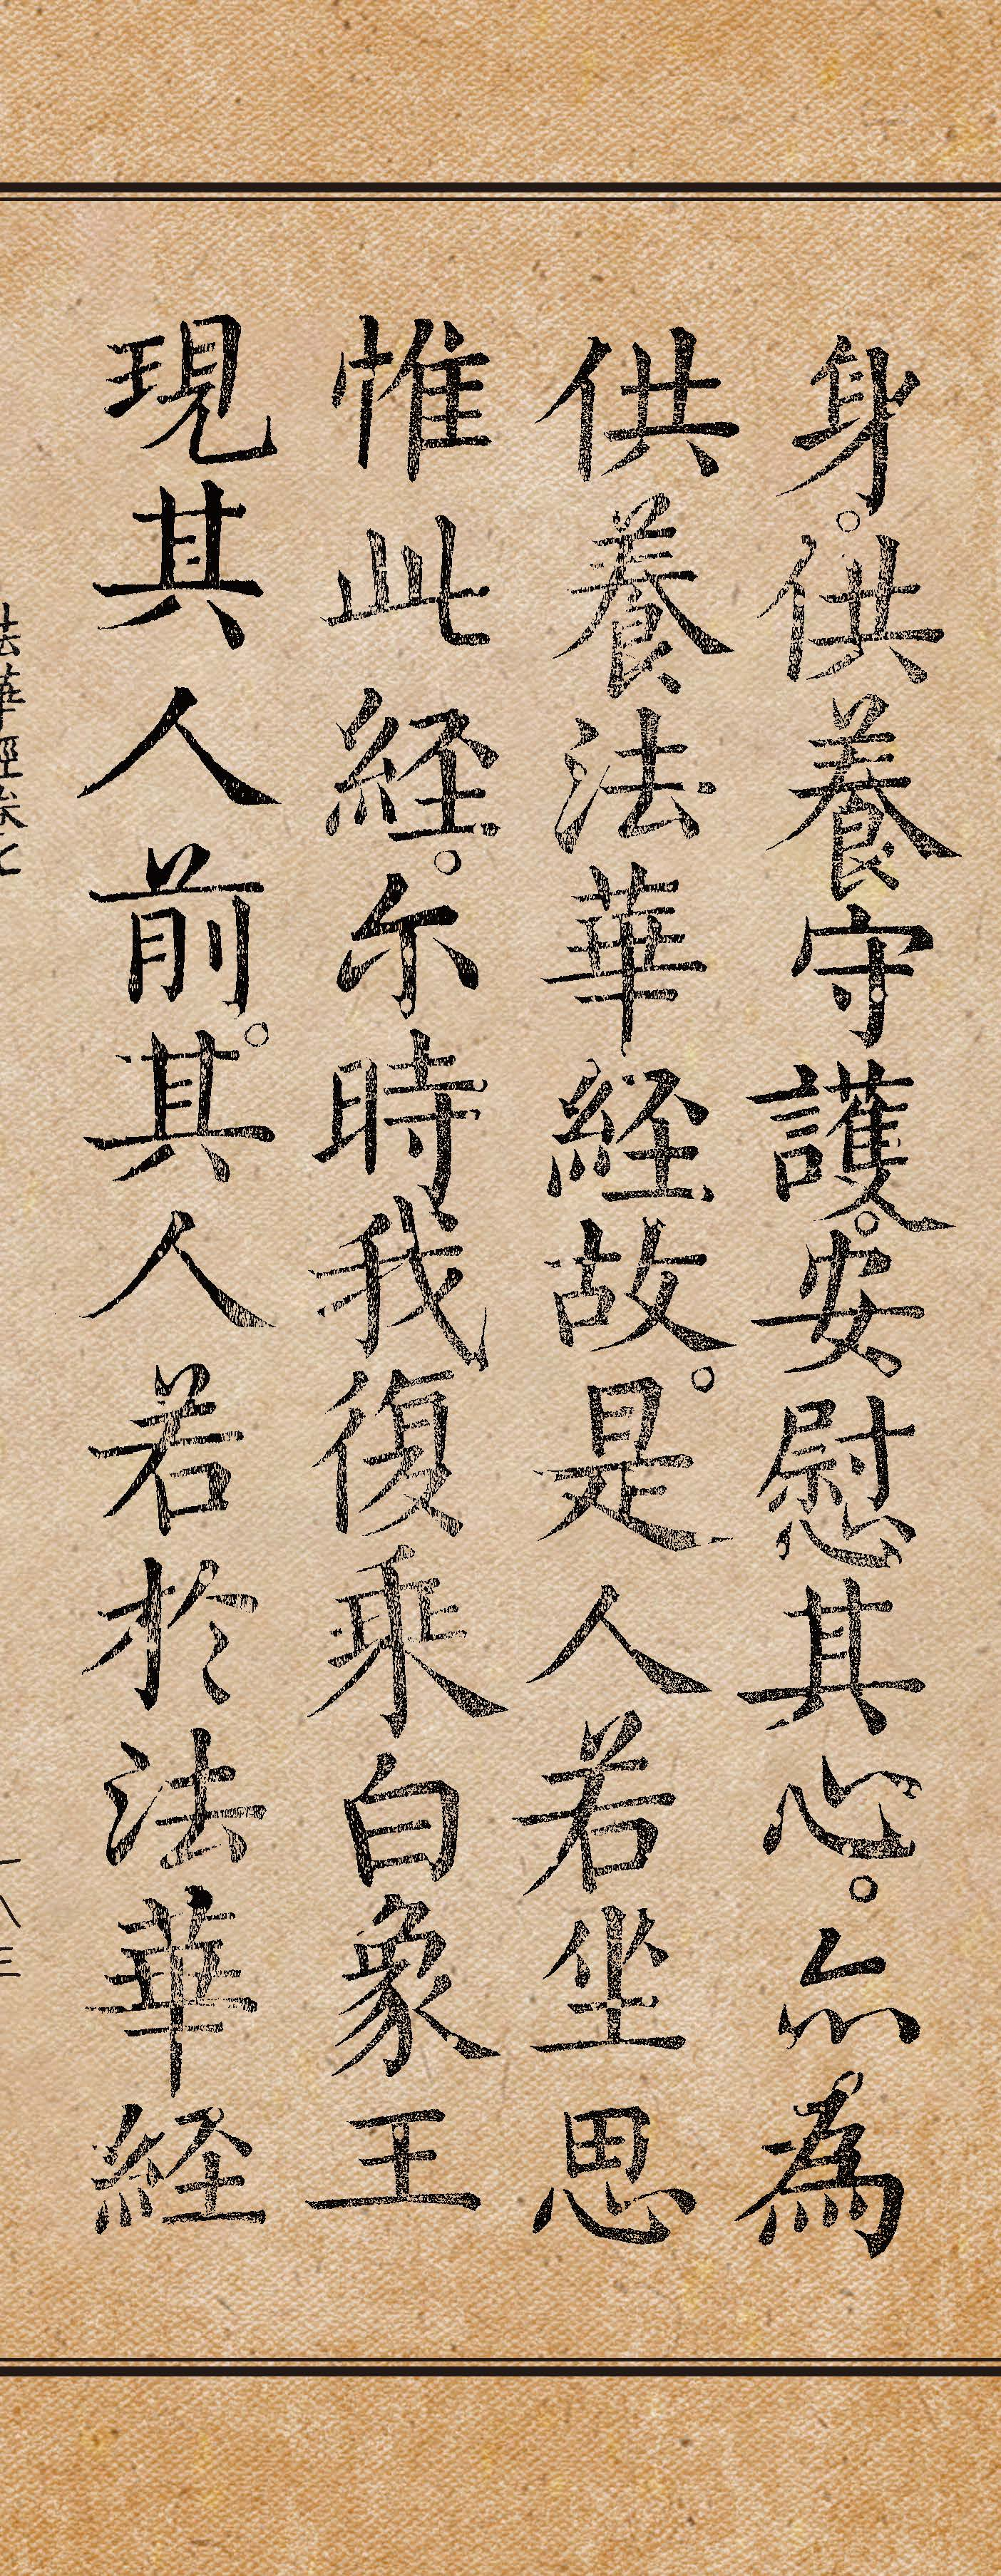 身。供養守護。安慰其心。亦為
供養法華経故。是人若坐思
惟此経。尓時我復乘白象王
現其人前。其人若於法華経
法華經卷七
一八三